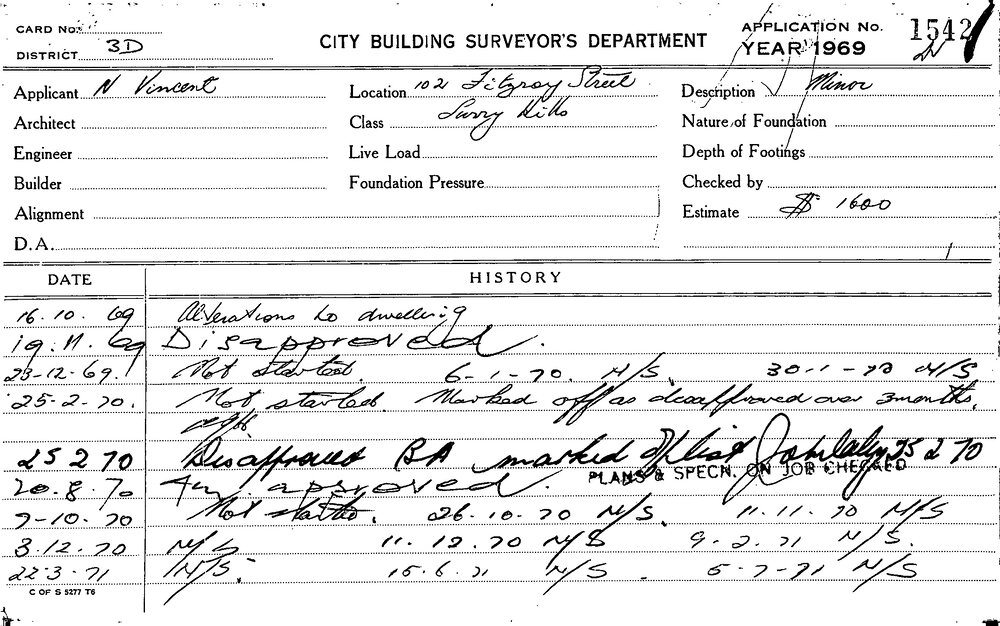 CARD No.
DISTRICT 3D
CITY BUILDING SURVEYOR'S DEPARTMENT
APPLICATION No. 1542
YEAR 1969
Applicant N Vincent
Location 102 Fitzroy Street
Description Minor
Architect
Class Surry Hills
Nature of Foundation
Engineer
Live Load
Depth of Footings
Builder
Foundation Pressure
Checked by
Alignment
Estimate $ 1600
D.A.
DATE HISTORY
16.10.69 Alterations to dwelling
19.11.69 Disapproved.
23-12-69. Not started. 6-1-70. N/S. 30-1-70 N/S
25-2-70. Not started. Marked off as disapproved over 3 months.
25 2 70 Disapproved BA marked off list 25 2 70
PLANS & SPECN. ON JOB CHECKED
20.8.70 approved.
7-10.70 Not started. 26.10.70 N/S. 11.11.70 N/S
3.12.70 N/S 11.12.70 N/S 9-2.71 N/S.
22-3.71 N/S. 15.6.71 N/S. 5-7-71 N/S
C OF S 5277 T6